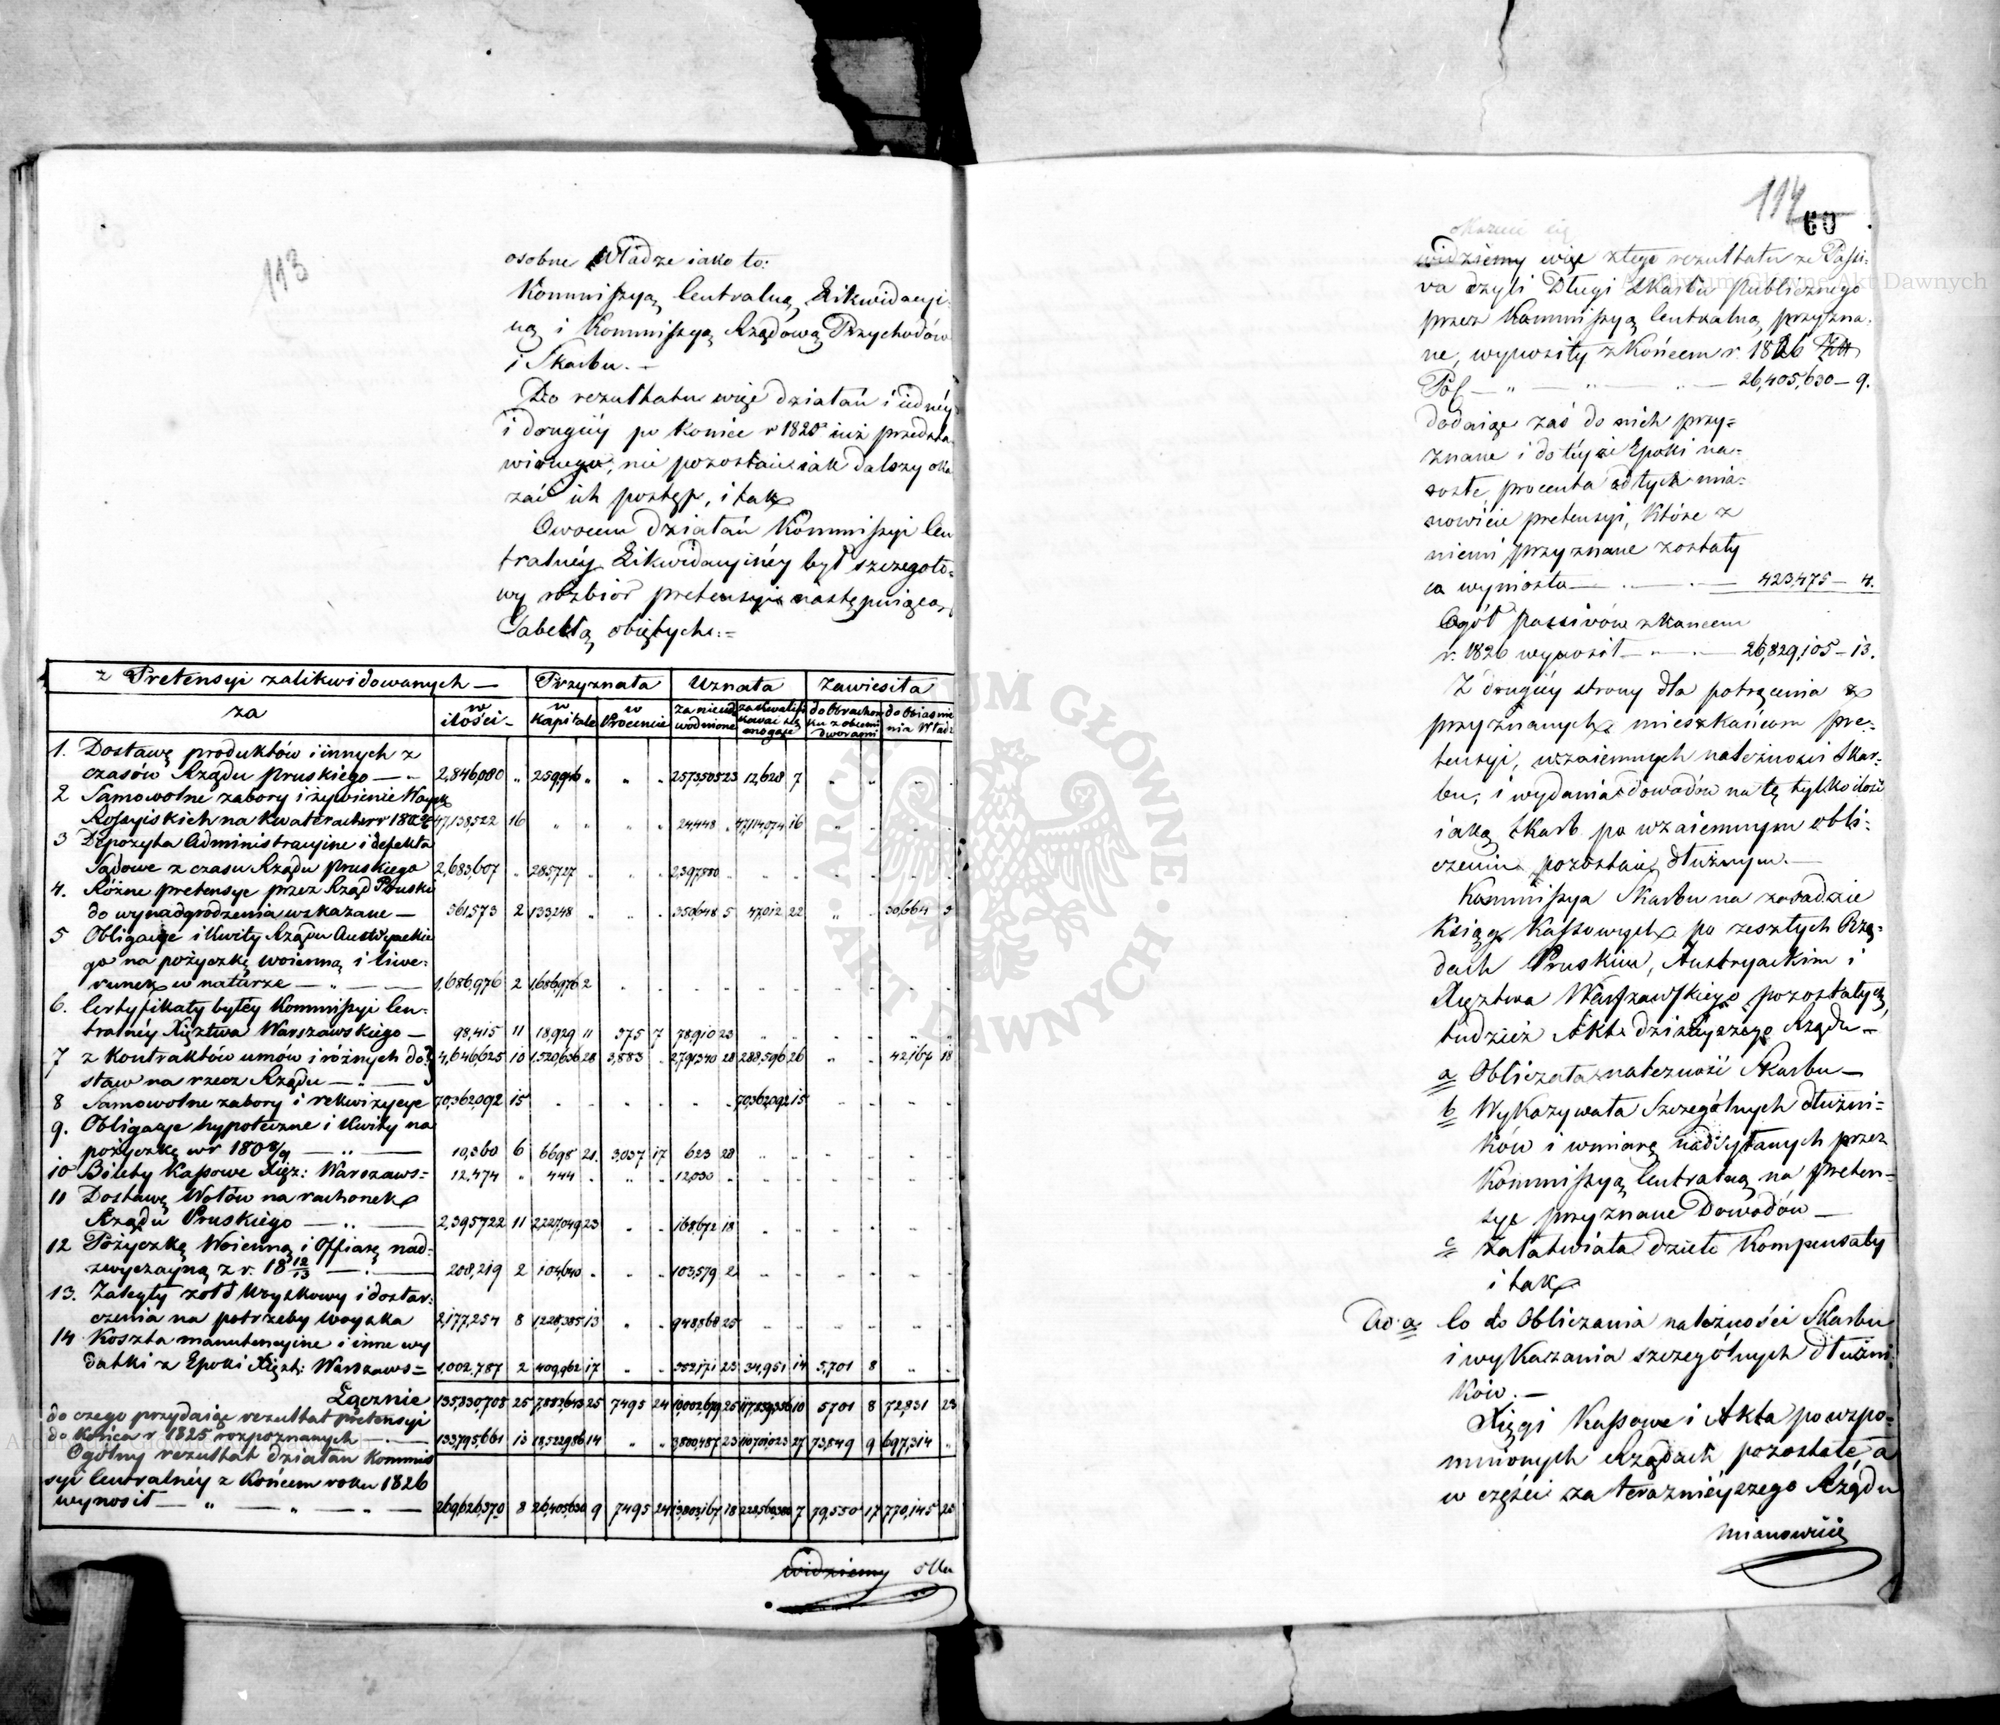 113
osobne Władze iako to:
Kommissyą Centralną Likwidacyi-
ną i Kommissyą Rządową Przychodów
i Skarbu. —
Do rezultatu więc działań i iednéy
i drugiéy po koniec r 1825 iuż przedsta-
wionego, nie pozostaie iak dalszy oka
zać ich postęp, i tak
Owocem działań Kommissyi Cen
tralnéy Likwidacyinéy był szczegóło-
wy rozbiór pretensyi następuiącą
Tabellą obiętych:=
z Pretensyi zalikwidowanych — Przyznała Uznała Zawiesiła
za w ilości - w Kapitale w Procencie za nieudo wodnione za kwalifi kować się mogące do Obrachon ku z obcemi dworami do Obiaśnie nia Władz
1. Dostawę produktów i innych z
czasów Rządu pruskiego — 2,846,080 „ 259,946 „ „ „ 2573505 23 12,628 7
2 Samowolne zabory i żywienie Woysk
Rossyiskich na kwaterach w r 47,138,522 16 „ „ „ „ 24,448 „ 47,114,074 16
3 Depozyta Administracyine i defekta
Sądowe z czasu Rządu pruskiego 2,683,607 „ 285,727 „ „ „
4. Różne pretensye przez Rząd Pruski
do wynadgrodzenia wskazane — 561,573 2 133,248 „ „ „ 350,648 5 47,012 22 „ „ 30,664 5
5 Obligacye i Kwity Rządu Austryackie
go na pożyczkę woienną i liwe-
runek w naturze — 1,686,976 2 1,686,976 2
6. Certyfikaty byłéy Kommissyi Cen-
tralnéy Xięztwa Warszawskiego — 98,415 11 18,929 11 575 7 78,910 23
7 z Kontraktów umów i różnych do-
staw na rzecz Rządu — 4,646,625 10 1,520,636 28 3,883 „ 2,791,340 28 288,596 26 „ „ 42,167 18
8 Samowolne zabory i rekwizycye 70,362,092 15 70,362,092 15
9. Obligacye hypoteczne i Kwity na
pożyczkę w r 1808/9 — 10,360 6 6698 21. 3,037 17 623 28
10 Bilety Kassowe Xięz: Warszaws= 12,474 „ 444 „ „ 12,030 „
11 Dostawę Wołów na rachonek
Rządu Pruskiego — 2,395,722 11 2,227,049 23 „ „ 168,672 18
12 Pożyczkę Woienną i Offiarę nad-
zwyczayną z r. 18 12/13 — 208,219 2 104,640 „ „ „ 103,579 2
13. Zaległy żołd Woyskowy i dostar-
czenia na potrzeby woyska 2,177,254 8 1,228,385 13 „ „ 948,868 25
14 Koszta manutencyine i inne wy
datki z Epoki Xięzt: Warszaws= 1,002,787 2 409,962 17 „ „ 552,171 23 34,951 14 5,701 8
Łącznie 135,830,708 25 7,882,643 25 7495 24 10,002,679 25 117,859,356 10 5701 8 72,831 23
do czego przydaiąc rezultat pretensyi
do końca r 1825 rozpoznanych — 133,795,661 13 18,522,986 14 „ „ 3,800,487 23 110,701,023 27 73,849 9 697,314 „
Ogólny rezultat działań Kommis
syi Centralnéy z Końcem roku 1826
wynosił — 269,626,370 8 26,405,630 9 7495 24 13,803,167 18 228,560,380 7 79,550 17 770,145 23
widziemy oka
114
60
okazuie się
widziemy więc z tego rezultatu że Passi-
va czyli Długi Skarbu publicznego
przez Kommissyą Centralną przyzna-
ne, wynosiły z Końcem r. 1826 Złł
Pol — „ — „ — 26,405,630 — 9.
dodaiąc zaś do nich przy-
znane i do téyże Epoki na-
rosłe procenta od tych mia-
nowicie pretensyi, które z
niemi przyznane zostały
co wyniosło — 423,475 — 4.
Ogół passivów z końcem
r. 1826 wynosił — 26,829,105 — 13.
Z drugiéy strony dla potrącenia z
przyznanych mieszkańcom pre-
tensyi, wzaiemnych należności Skar-
bu, i wydania dowodów na tę tylko ilość
iaką Skarb po wzaiemnym obli-
czeniu pozostaie dłużnym. —
Kommissya Skarbu na zasadzie
Ksiąg Kassowych po zeszłych Rzą-
dach Pruskim, Austryackim i
Xięztwa Warszawskiego pozostałych,
tudzież Akt dzisieyszego Rządu —
a Obliczała należność Skarbu —
b Wykazywała Szczególnych dłużni-
ków i w miarę nadsyłanych przez
Kommissyą Centralną na preten-
sye przyznane Dowodów —
c Załatwiała dzieło Kompensaty
i tak
Ad. a Co do obliczania należności Skarbu
i wykazania szczególnych dłużni-
ków. —
Xięgi Kassowe i Akta po wzpo-
mnionych Rządach pozostałe a
w części za teraznieyszego Rządu
mianowicie
ARCHIWUM GŁÓWNE AKT DAWNYCH
Archiwum Główne Akt Dawnych
Archiwum Główne Akt Dawnych